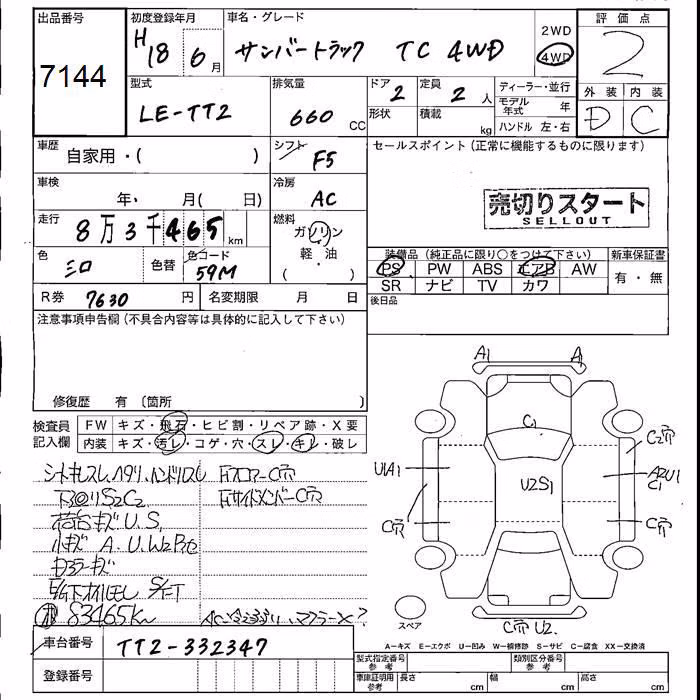 出品番号
7144
初度登録年月
H18 6月
車名・グレード
サンバートラック TC 4WD
2WD
4WD
評価点
2
型式
LE-TT2
排気量
660 CC
ドア
2
形状
定員
2人
積載
kg
ディーラー・並行
モデル年式 年
ハンドル 左・右
外装 内装
D C
車歴
自家用・( )
シフト
F5
車検
年・ 月( 日)
冷房
AC
走行
8万3千465km
燃料
ガソリン
軽・油
( )
色
シロ
色替
色コード
59M
R券 7630円
名変期限 月 日
セールスポイント(正常に機能するものに限ります)
売切りスタート
SELLOUT
装備品(純正品に限り○をつけて下さい)
PS PW ABS エアB AW
SR ナビ TV カワ
新車保証書
有・無
後日品
注意事項申告欄(不具合内容等は具体的に記入して下さい)
修復歴 有(箇所 )
検査員記入欄
FW キズ・飛石・ヒビ割・リペア跡・X要
内装 キズ・汚レ・コゲ・穴・スレ・キレ・破レ
荷台キズU.S,
小キズ A.U.W2
83465K
A1 A
C1
U1A1
U2S1
C2穴
A2U1
C1
C穴
C穴
C穴 U2.
スペア
A=キズ E=エクボ U=凹み W=補修跡 S=サビ C=腐食 XX=交換済
車台番号
TT2-332347
登録番号
型式指定番号 参考
類別区分番号 参考
車庫証明用 参考
長さ cm
幅 cm
高さ cm